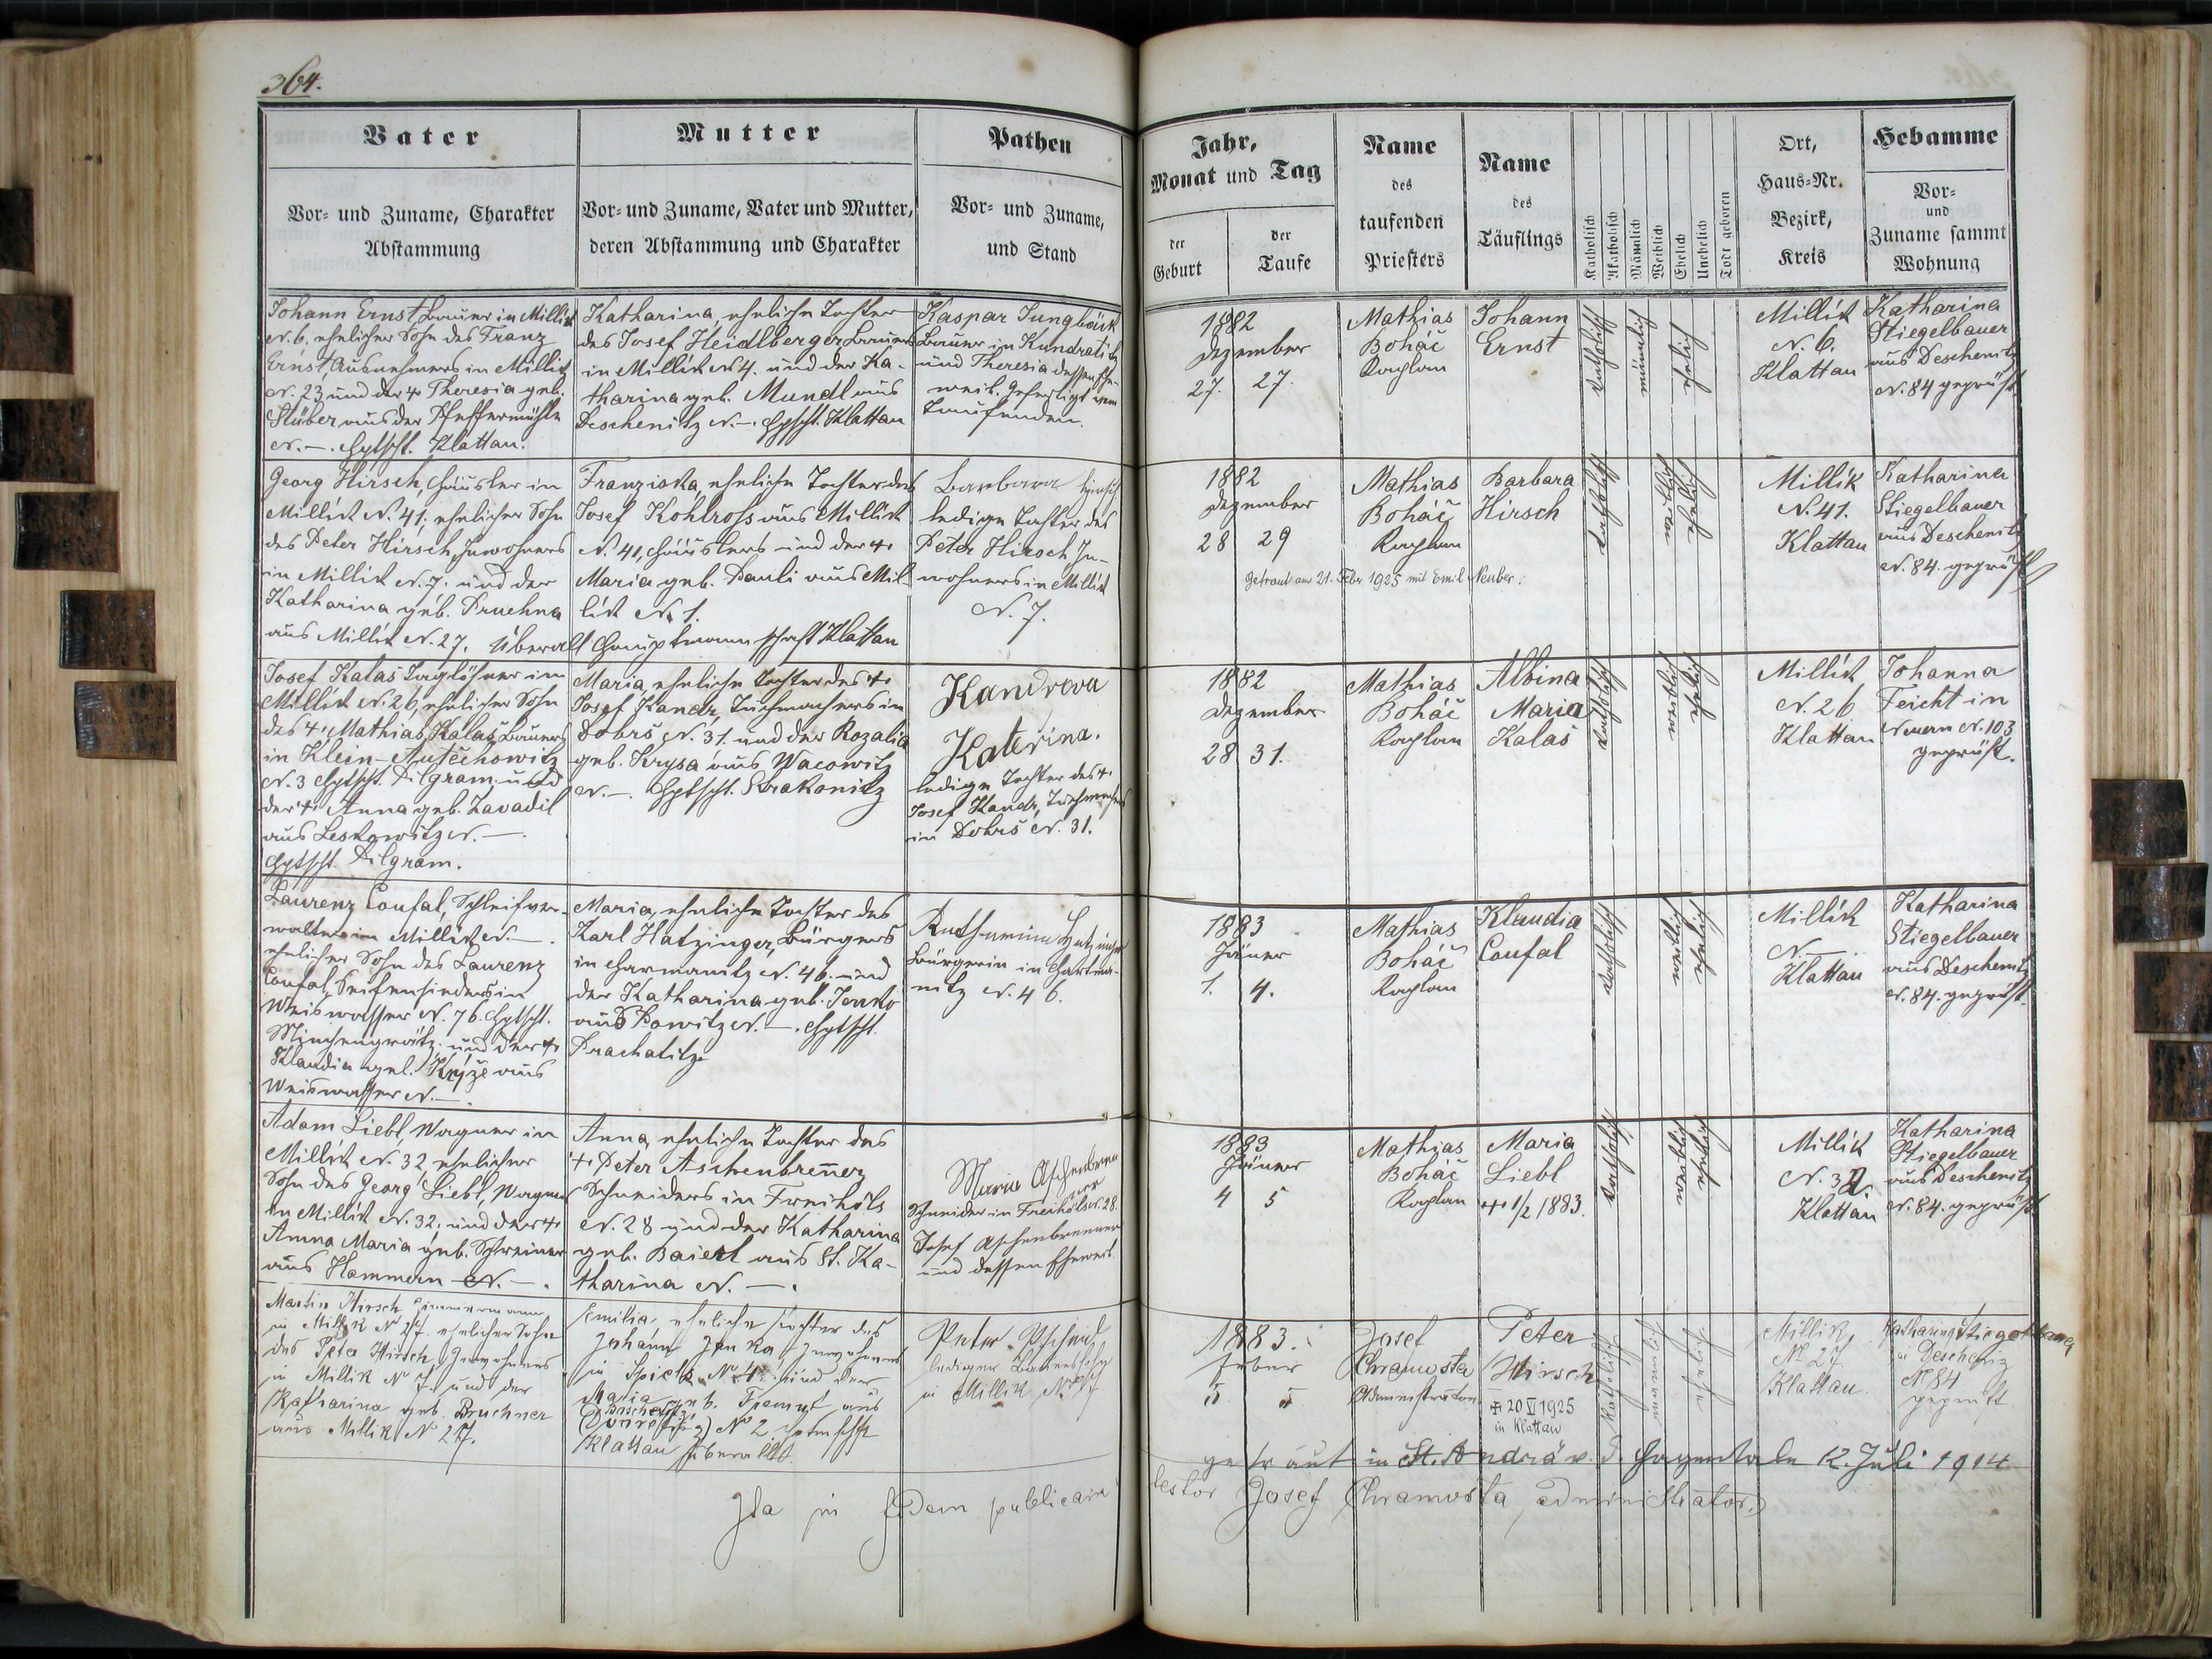 364.
Vater
Vor- und Zuname, Charakter
Abstammung
Mutter
Vor- und Zuname, Vater und Mutter,
deren Abstammung und Charakter
Pathen
Vor- und Zuname,
und Stand
Jahr,
Monat und Tag
der
Geburt
der
Taufe
Name
des
taufenden
Priesters
Name
des
Täuflings
Katholisch
Akatholisch
Männlich
Weiblich
Ehelich
Unehelich
Todt geboren
Ort,
Haus-Nr.
Bezirk,
Kreis
Hebamme
Vor-
und
Zuname sammt
Wohnung
Johann Ernst, Bauer in Millik
N. 6. ehelicher Sohn des Franz
Ernst, Ausnehmers in Millik
N. 23 und der + Theresia geb.
Stüber aus der Pfeffermühle
N. —. Hptsch. Klattau.
Katharina, eheliche Tochter
des Josef Heidlberger Bauers
in Millik N 4. und der Ka-
tharina geb. Mundl aus
Deschenitz N. —. Hptsch. Klattau
Kaspar Jungbäck
Bauer in Kundratitz
und Theresia dessen Ehe-
weib. Gefertigt vom
Taufenden.
1882
Dezember
27. 27.
Mathias
Boháč
Kaplan
Johann
Ernst
katholisch
männlich
ehelich
Millik
N. 6.
Klattau
Katharina
Stiegelbauer
aus Deschenitz
N. 84 geprüft.
Georg Hirsch, Häusler in
Millik N. 41; ehelicher Sohn
des Peter Hirsch, Inwohners
in Millik N. 7. und der
Katharina geb. Pruchna
aus Millik N. 27. Überall Hauptmannschaft Klattau
Franziska, eheliche Tochter des
Josef Kohlross aus Millik
N. 41, Häuslers und der +
Maria geb. Pauli aus Mil-
lik N. 1.
Barbara Hirsch
ledige Tochter des
Peter Hirsch In-
wohners in Millik
N. 7.
1882
Dezember
28 29
Mathias
Boháč
Kaplan
Barbara
Hirsch
katholisch
weiblich
ehelich
Getraut am 21. Feber 1925 mit Emil Neuber.
Millik
N. 41.
Klattau
Katharina
Stiegelbauer
aus Deschenitz
N. 84. geprüft
Josef Kalaš Taglöhner in
Millik N. 26, ehelicher Sohn
des + Mathias Kalaš, Bauers
in Klein-Autěchowitz
N. 3 Hptsch. Pilgram, und
der + Anna geb. Zavadil
aus Leskowitz N. —.
Hptsch. Pilgram.
Maria, eheliche Tochter des +
Josef Kandr, Tuchmachers in
Dobrš N. 31. und der Rozalia
geb. Krysa aus Wacowitz
N. —. Hptsch. Strakonitz
Kandrova
Kateřina.
ledige Tochter des +
Josef Kandr, Tuchmachers
in Dobrš N. 31.
1882
Dezember
28 31.
Mathias
Boháč
Kaplan
Albina
Maria
Kalaš
katholisch
weiblich
ehelich
Millik
N. 26
Klattau
Johanna
Feicht in
Neuern N. 103
geprüft.
Laurenz Coufal, Schleifver-
walter in Millik N. —.
ehelicher Sohn des Laurenz
Coufal, Seifensieders in
Weiswasser N. 76. Hptsch.
Münchengrätz. und der +
Klaudia geb. Krýže aus
Weiswasser N. —.
Maria, eheliche Tochter des
Karl Hatzinger, Bürgers
in Harmanitz N. 46. und
der Katharina geb. Jenko
aus Bowitz N. —. Hptsch.
Prachatitz
Katharina Hatzinger
Bürgerin in Hartma-
nitz N. 46.
1883
Jäner
1. 4.
Mathias
Boháč
Kaplan
Klaudia
Coufal
katholisch
weiblich
ehelich
Millik
N. —
Klattau
Katharina
Stiegelbauer
aus Deschenitz
N. 84. geprüft.
Adam Liebl, Wagner in
Millik N. 32, ehelicher
Sohn des Georg Liebl, Wagner
in Millik N. 32; und der +
Anna Maria geb. Schreiner
aus Hammern N. —.
Anna, eheliche Tochter des
+ Peter Aschenbrenner
Schneiders in Freihöls
N. 28 und der Katharina
geb. Baierl aus St. Ka-
tharina N. —.
Maria Aschenbrenner
Schneider in Freihöls N. 28.
Josef Aschenbrenner
und dessen Eheweib
1883
Jänner
4 5
Mathias
Boháč
Kaplan
Maria
Liebl
+ 1/2 1883.
katholisch
weiblich
ehelich
Millik
N. 32.
Klattau
Katharina
Stiegelbauer
aus Deschenitz
N. 84. geprüft.
Martin Hirsch Zimmermann
in Millik N 27. ehelicher Sohn
des Peter Hirsch, Inwohners
in Millik N 7. und der
Katharina geb. Pruchner
aus Millik N 27.
Emilia, eheliche Tochter des
Johann Janka, Inwohners
in Spitz N. 4 und der
Maria geb. aus
N 2
Klattau überall
Peter
lediger Bauerssohn
in Millik
1883.
Feber
5 5
Josef
Chramosta
Administrator
Peter
Hirsch
✠ 20 VI 1925
in Klattau
katholisch
ehelich
Millik
No 27
Klattau.
Katharina Stiegelbauer
in Deschenitz
No 84
geprüft
getraut in St. Andrä v. d. Hagenthale 12. Juli 1914
Ita in fidem publicam testor Josef Chramosta administrator.